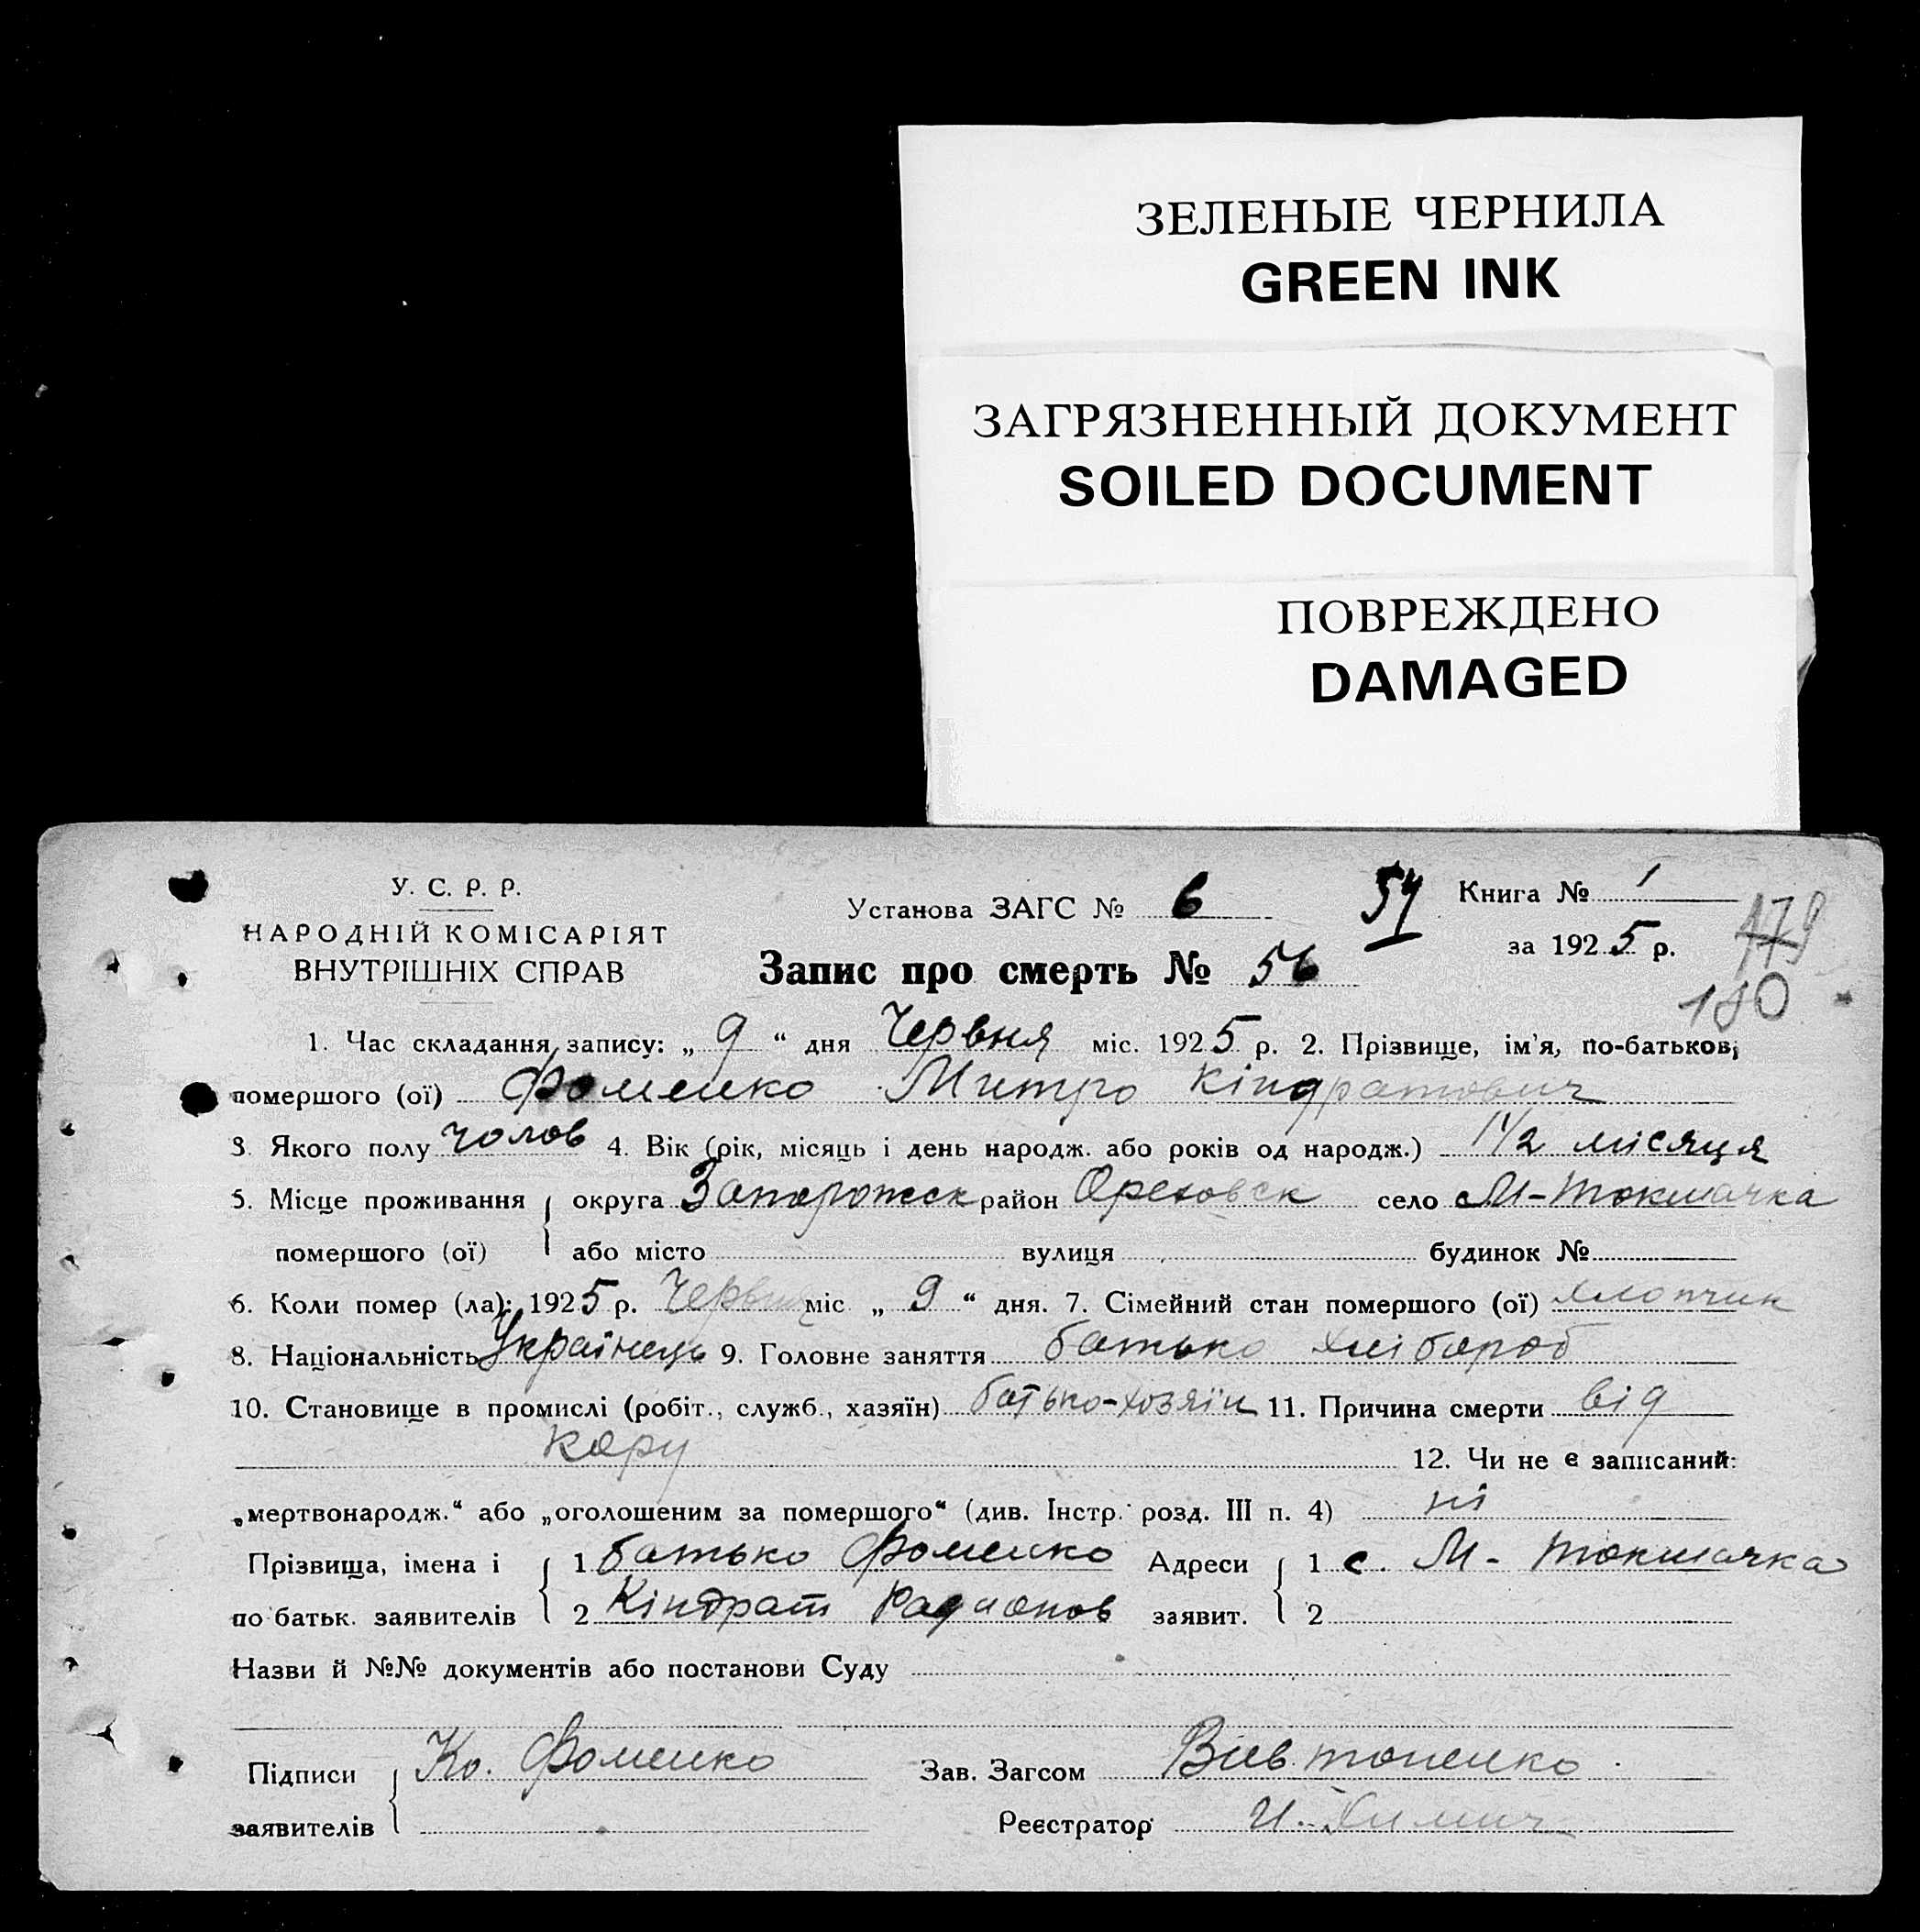 ЗЕЛЕНЫЕ ЧЕРНИЛА
GREEN INK
ЗАГРЯЗНЕННЫЙ ДОКУМЕНТ
SOILED DOCUMENT
ПОВРЕЖДЕНО
DAMAGED
У. С. Р. Р.
НАРОДНІЙ КОМІСАРІЯТ
ВНУТРІШНІХ СПРАВ
Установа ЗАГС № 6
54
Книга № 1
за 1925 р.
Запис про смерть № 56
179
180
1. Час складання запису: „ 9 “ дня Червня міс. 1925 р. 2. Прізвище, ім'я, по-батькові
помершого (ої) Фоменко Митро Кіндратович
3. Якого полу чолов 4. Вік (рік, місяць і день народж. або років од народж.) 1 1/2 місяця
5. Місце проживання округа Запорожск район Ореховск село М-Токмачка
помершого (ої) або місто вулиця будинок №
6. Коли помер (ла): 1925 р. Червня міс „ 9 “ дня. 7. Сімейний стан помершого (ої) хлопчик
8. Національність Українець 9. Головне заняття батько хлібороб
10. Становище в промислі (робіт., служб., хазяїн) батько-хозяїн 11. Причина смерти від
кору
12. Чи не є записаний:
„мертвонародж.“ або „оголошеним за помершого“ (див. Інстр. розд. III п. 4) ні
Прізвища, імена і 1 батько Фоменко Адреси 1 с. М-Токмачка
по батьк. заявителів 2 Кіндрат Радионов заявит. 2
Назви й №№ документів або постанови Суду
Підписи Ко. Фоменко Зав. Загсом
заявителів Реєстратор И.